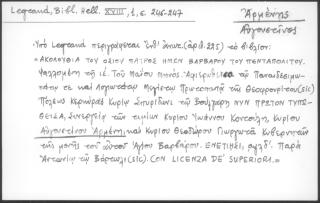 Legrand, Bibl. Hell. XVIII, 1, σ. 246-247
Ἀρμένης
Αὐγουστῖνος
Ὑπὸ Legrand περιγράφεται ἐνθ' ἀνωτ. (ἀρ. 225) τὸ βιβλίον:
«ΑΚΟΛΟΥΘΙΑ ΤΟΥ ΟΣΙΟΥ ΠΑΤΡΟΣ ΗΜΩΝ ΒΑΡΒΑΡΟΥ ΤΟΥ ΠΕΝΤΑΠΟΛΙΤΟΥ.
Ψαλλομένη τῇ ιε. Τοῦ Μαΐου Μηνός. Ἀφιερωθεῖσα τῷ Πανοσιωτά-
τῳ τε καὶ Λογιωτάτῳ Μεγάλῳ Πρωτοπαπᾷ τῆς Θεοφρουρίτου (sic)
Πόλεως Κερκύρας Κυρίῳ Σπυρίδωνι τῷ Βούλγαρῃ ΝΥΝ ΠΡΩΤΟΝ ΤΥΠΩ-
ΘΕΙΣΑ, Συνεργείᾳ τῶν τιμίων Κυρίου Ἰωάννου Κοντούλη, Κυρίου
Αὐγουστίνου Ἀρμένη, καὶ Κυρίου Θεοδώρου Γιωργατᾶ Κυβερνητῶν
τῆς μονῆς τοῦ αὐτοῦ Ἁγίου Βαρβάρου. ΕΝΕΤΙΗΣΙ, αψλδ'. Παρὰ
Ἀντωνίῳ τῷ Βόρτολι (sic). CON LICENZA DE' SUPERIORI.»